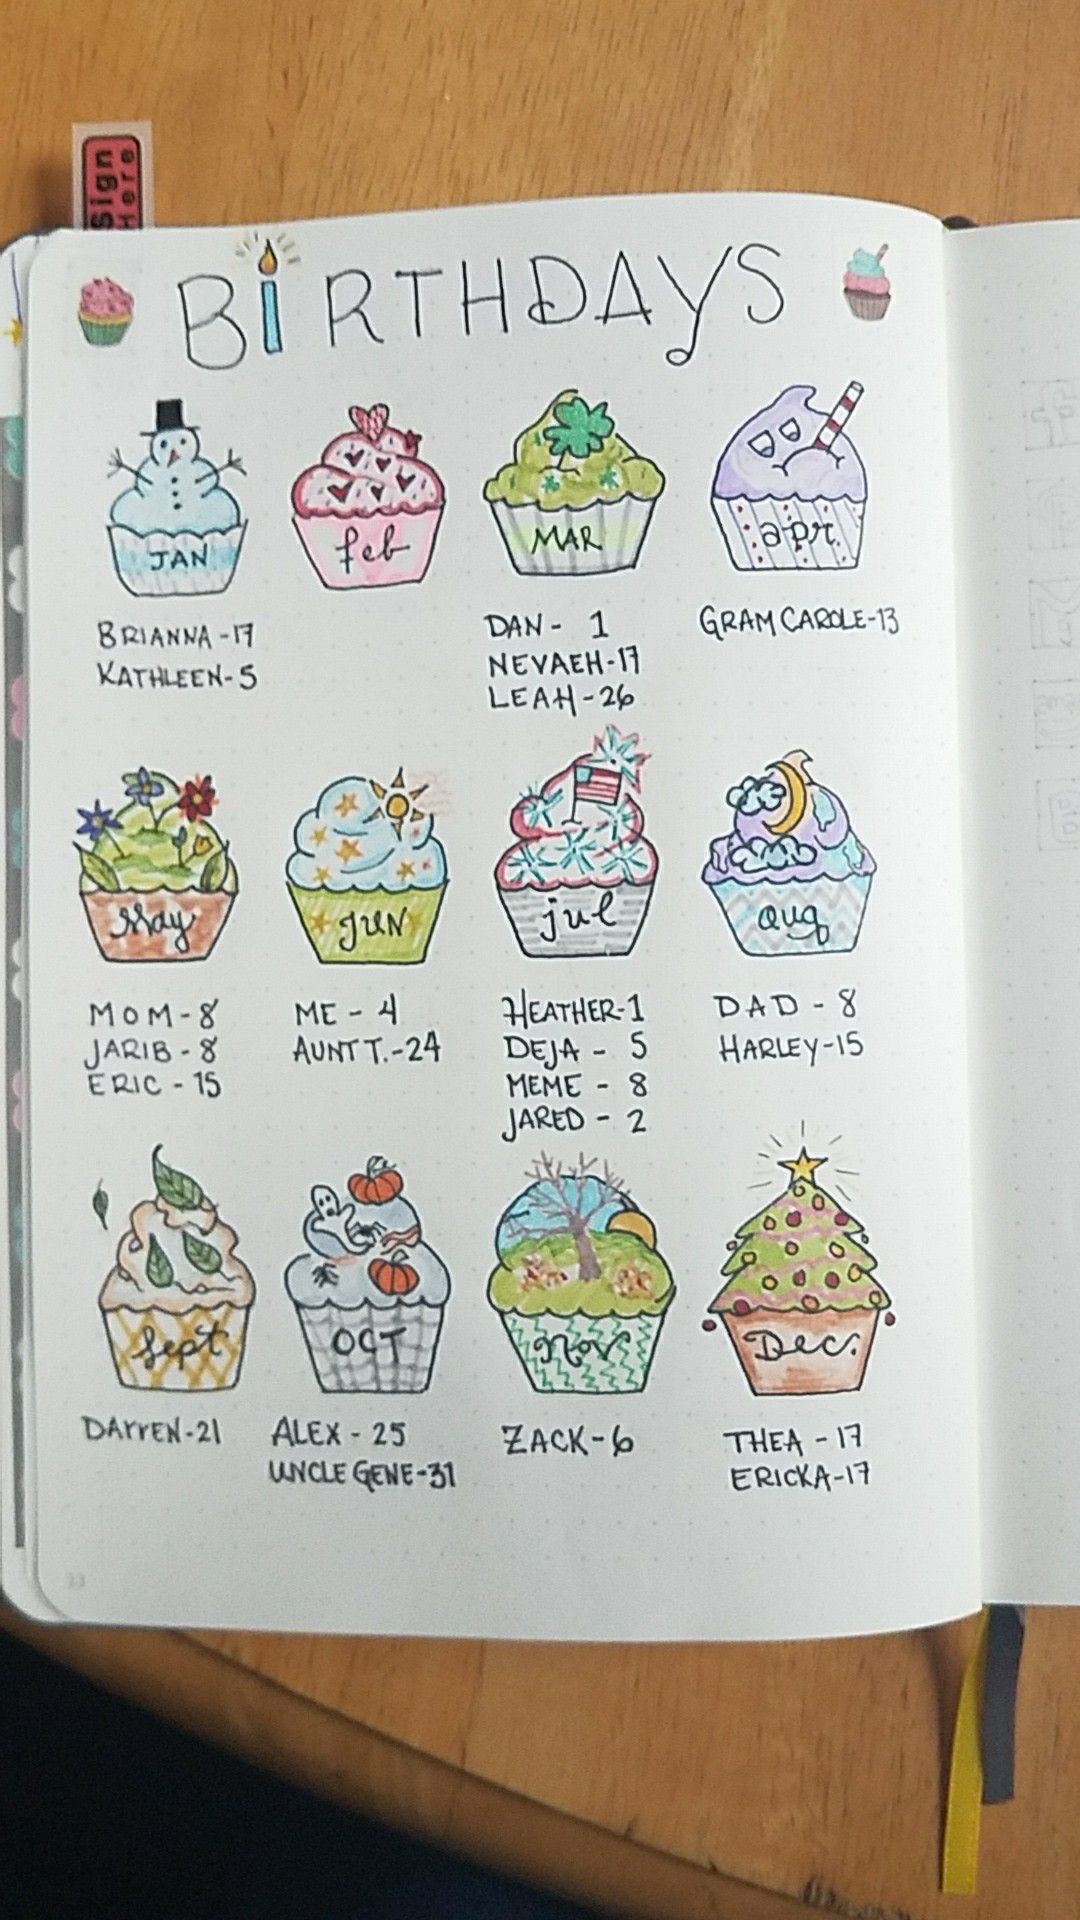 Sign
Here
BiRTHDAYS
JAN
feb
MAR
apr.
BRIANNA - 17
KATHLEEN - 5
DAN - 1
NEVAEH - 17
LEAH - 26
GRAM CAROLE - 13
May
JUN
jul
aug
MOM - 8
JARIB - 8
ERIC - 15
ME - 4
AUNT T. - 24
HEATHER - 1
DEJA - 5
MEME - 8
JARED - 2
DAD - 8
HARLEY - 15
Sept
OCT
Nov
Dec.
DArrEN - 21
ALEX - 25
UNCLE GENE - 31
ZACK - 6
THEA - 17
ERICKA - 17